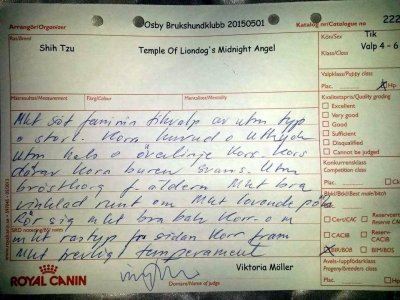 Arrangör/Organizer
Osby Brukshundklubb 20150501
Katalog nr/Catalogue no
222
Ras/Breed
Shih Tzu
Temple Of Liondog's Midnight Angel
Kön/Sex
Tik
Klass/Class
Valp 4-6
Valpklass/Puppy class
Plac.
Hp
Mankmått/Measurement
Färg/Colour
Mentalitet/Mentality
Kvalitetspris/Quality grading
Excellent
Very good
Good
Sufficient
Disqualified
Cannot be judged
Konkurrensklass
Competition class
Plac.
Bhkl/Bkkl/Best male/bitch
Plac.
Cert/CAC
Reserv-cert
Reserve CAC
CACIB
BIR/BOB
BIM/BOS
Avels-/uppfödarklass
Progeny/Breeders class
Plac.
Mkt söt feminin tikvalp av utm typ
o storl. Korr huvud o uttryck
Utm hals o överlinje Kors. Kors
Korr buren svans. Utm
bröstkorg f åldern Mkt bra
vinklad runt om Mkt lovande päls
Rör sig mkt bra bak Korr o m
mkt rastyp fr sidan Korr fram
Mkt trevlig temperament
SKD notering/SKC notes
ROYAL CANIN
Viktoria Möller
Domare/Name of judge